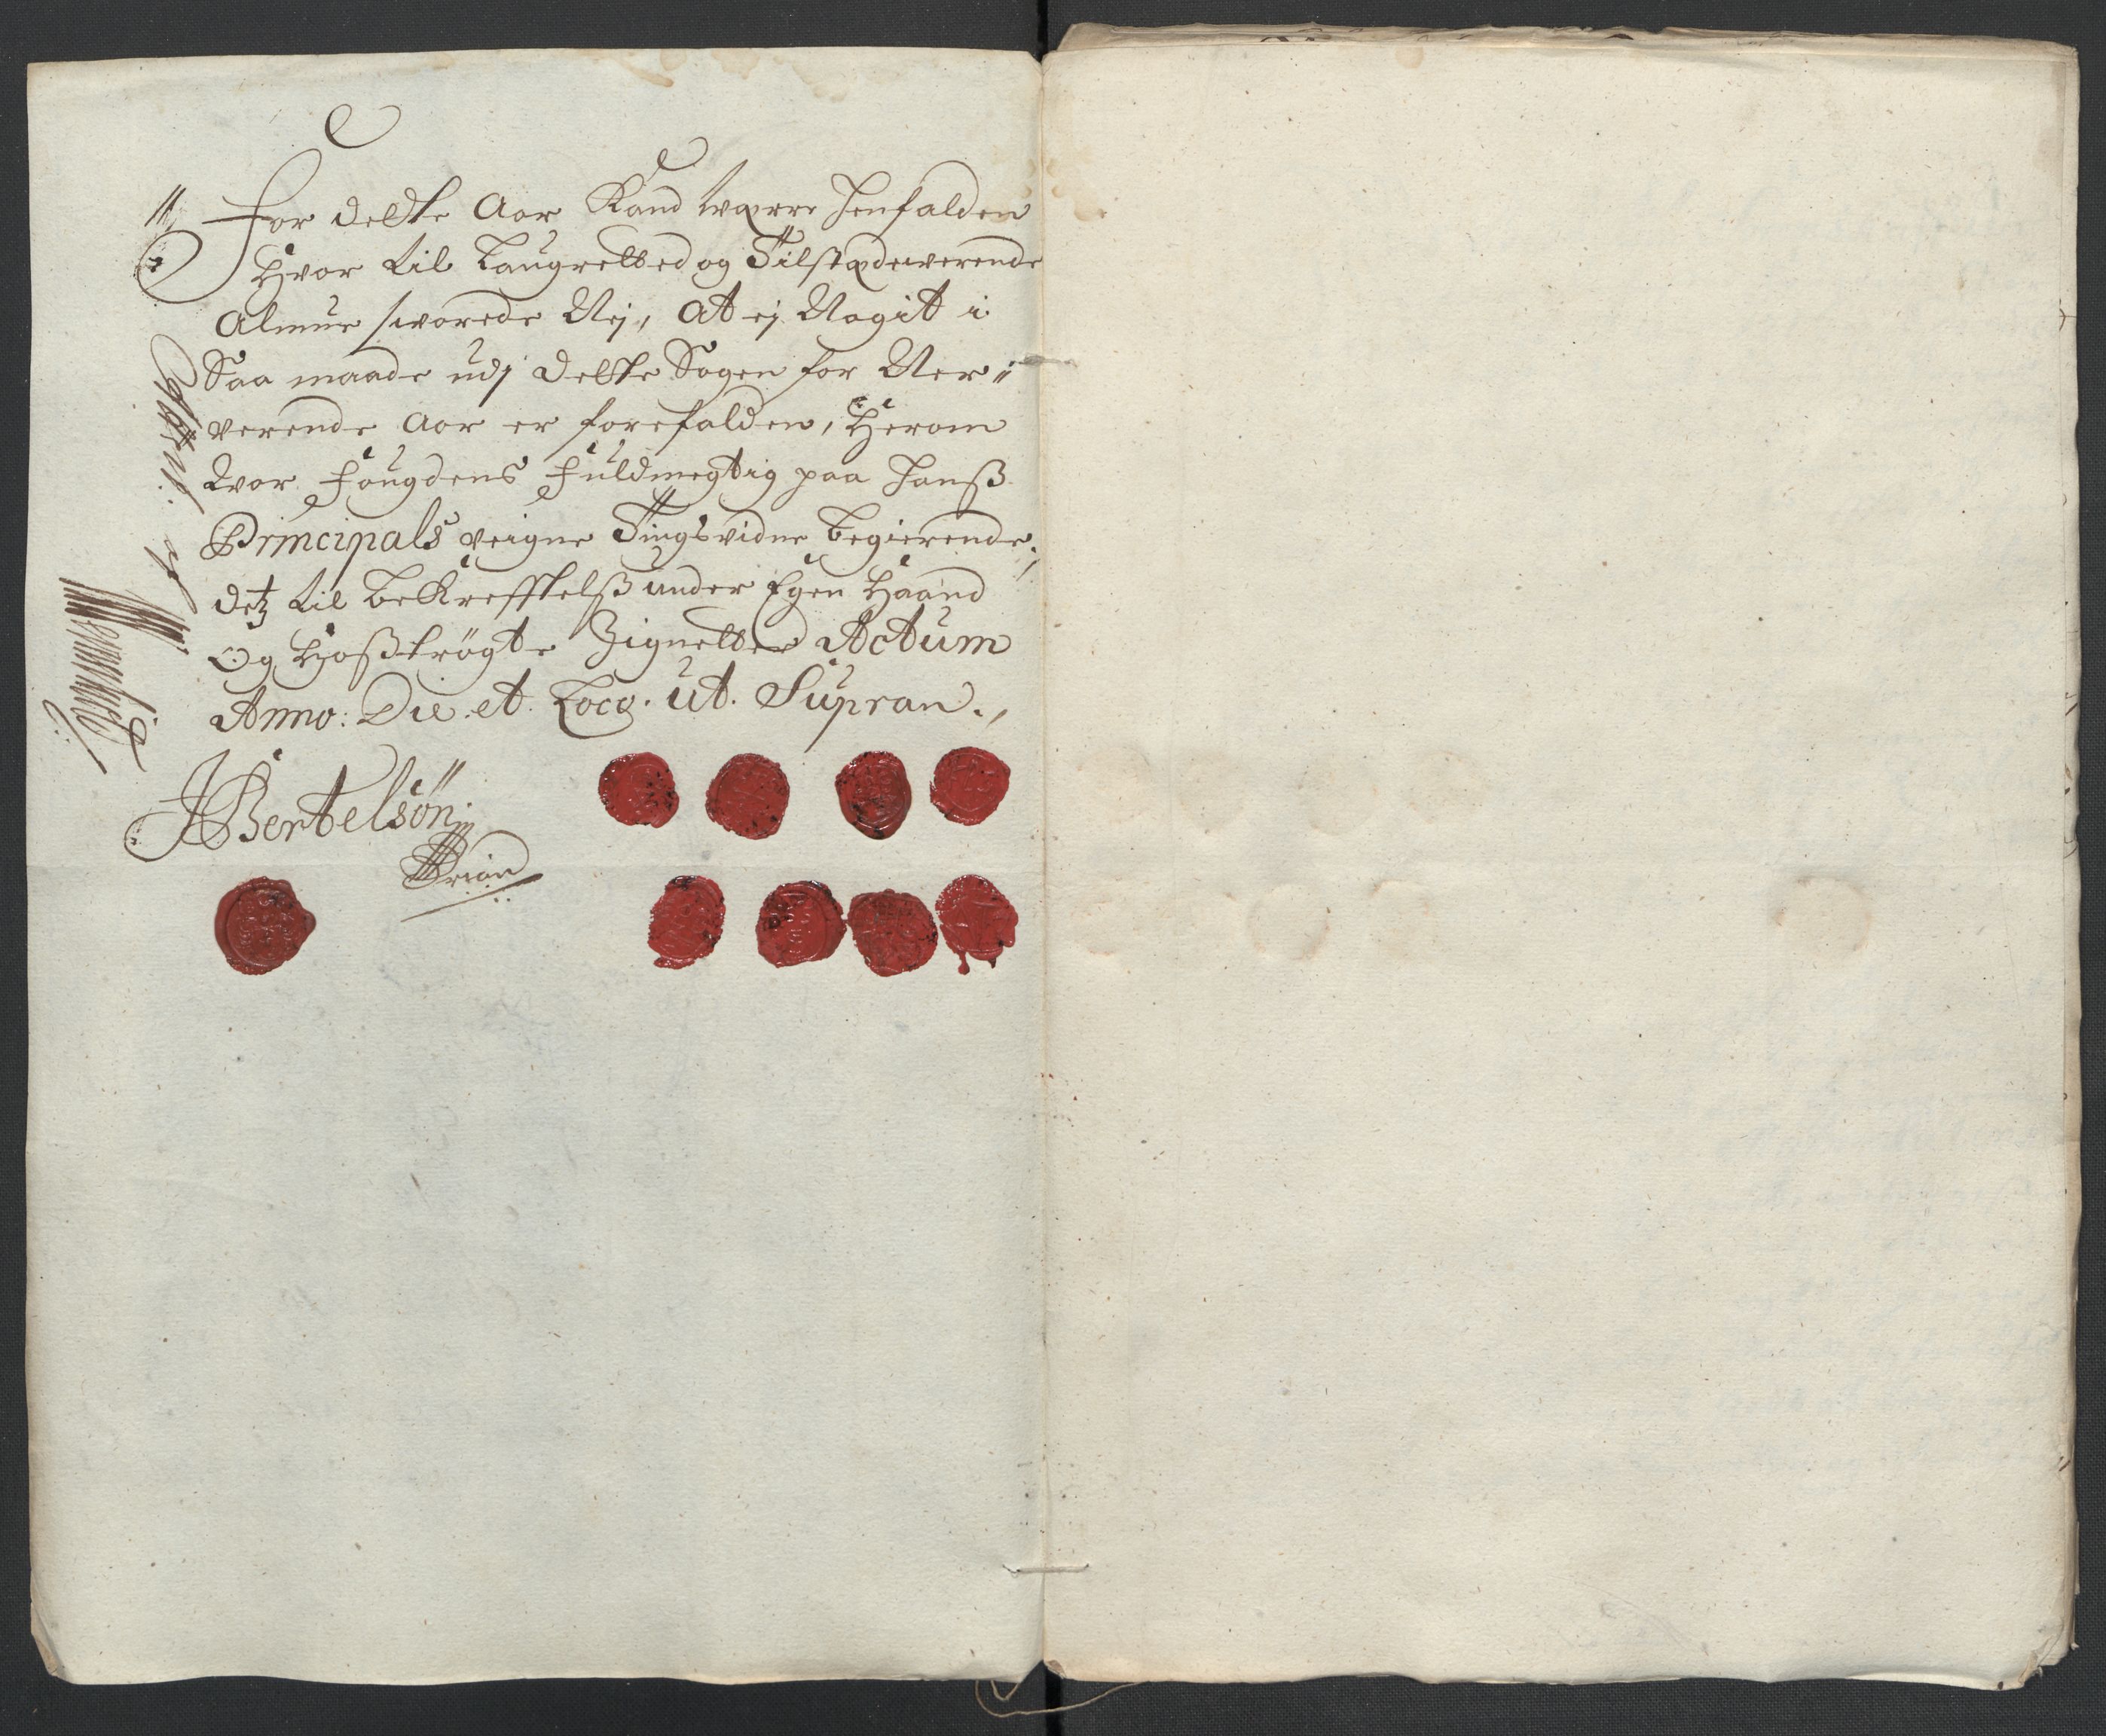 For dette Aar Kand Værre henfalden
Hvor til Laugretted og Tilstædewerende
Almue swarede Nej, At ej Nogit i
Saa maade udj dette Sogen for Ner„
verende Aar er forefalden, Herom
War Fougdens Fuldmegtig paa Hanß
Principals veigne Tingsvidne Begierende,
detz til BeKrefftelß under Egen Haand
Og Hoßtrögte Zignetter Actum
Anno: Die. et. Loco. ut. Supran.,
JBertelsön.